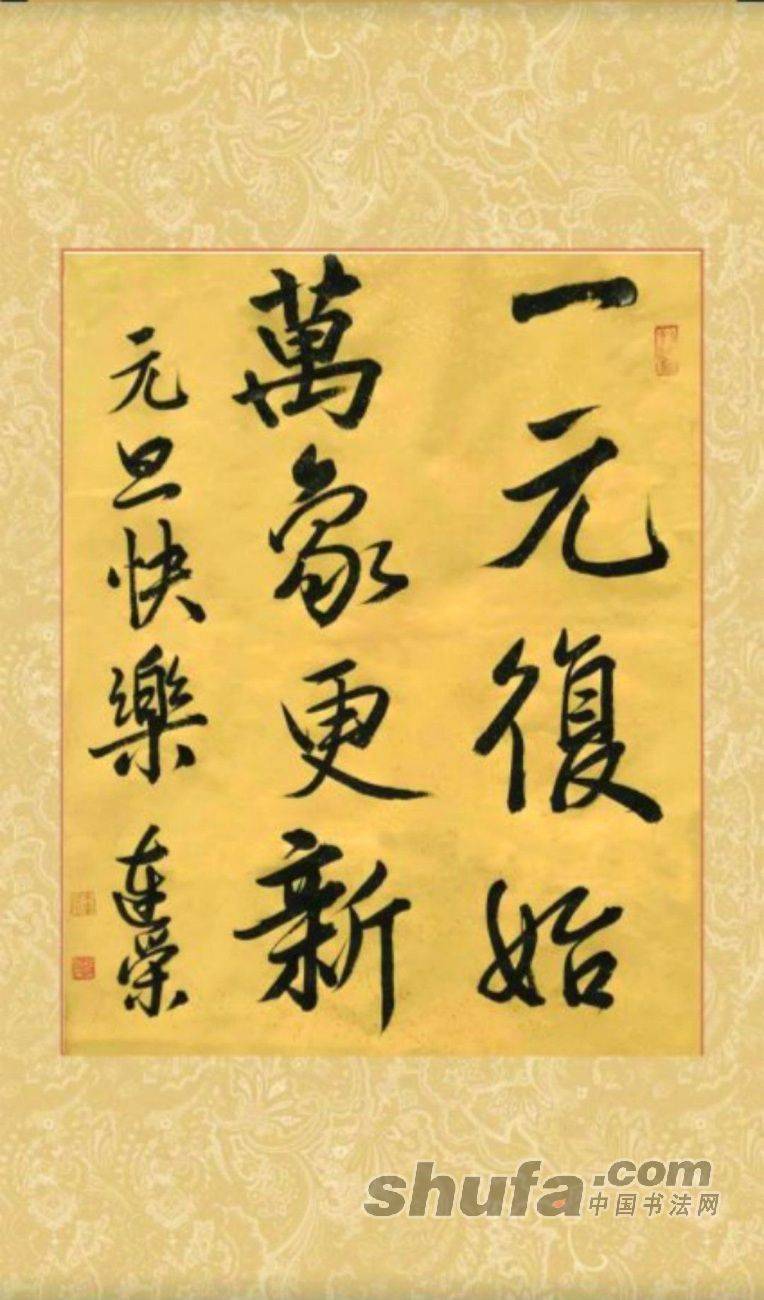 一元復始
萬象更新
元旦快樂 連榮
shufa.com
中国书法网